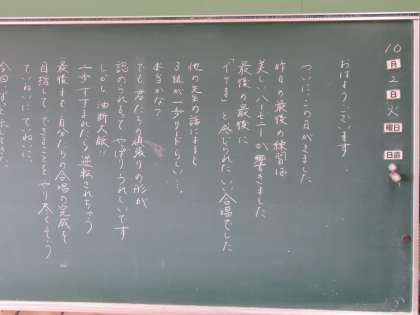 10月2日火曜日
日直
おはようございます
ついにこの日がきました
昨日の最後の練習は
美しいハーモニーが響きました
最後の最後に
「イケる」と感じられたいい合唱でした
他の先生の話によると
3組が一歩リードらしい…。
本当かな?
でも君たちの頑張りの形が
認められるってやっぱりうれしいです
しかし油断大敵!!
一歩すすまれたら逆転されちゃう
最後まで自分たちの合唱の完成を
目指して、できることをやり尽くそう
ていねいに、ていねいに、